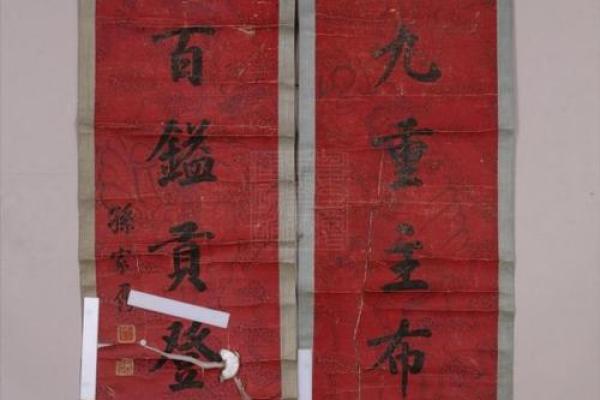 九重主布
百鎰貢登
孫家